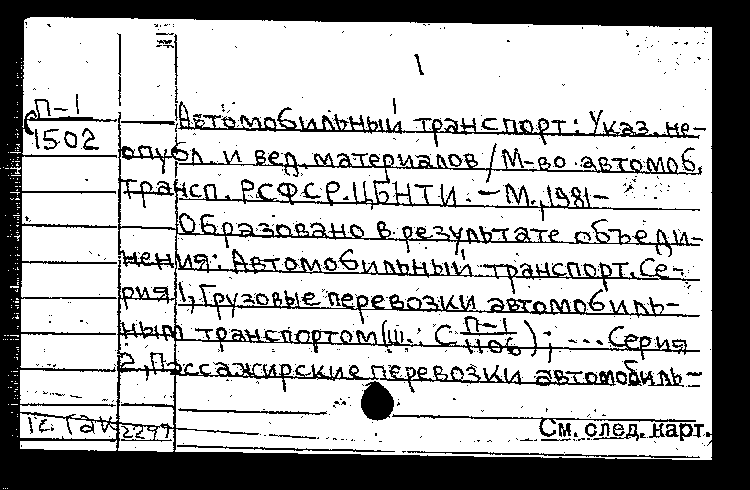 1
П-1
С 1502
Автомобильный транспорт: Указ. не-
опубл. и вед. материалов / М-во автомоб.
трансп. РСФСР. ЦБНТИ. — М., 1981-
Образовано в результате объеди-
нения: Автомобильный транспорт. Се-
рия 1, Грузовые перевозки автомобиль-
ным транспортом (ш.: С П-1/1106); ... Серия
2, Пассажирские перевозки автомобиль-
См. след. карт.